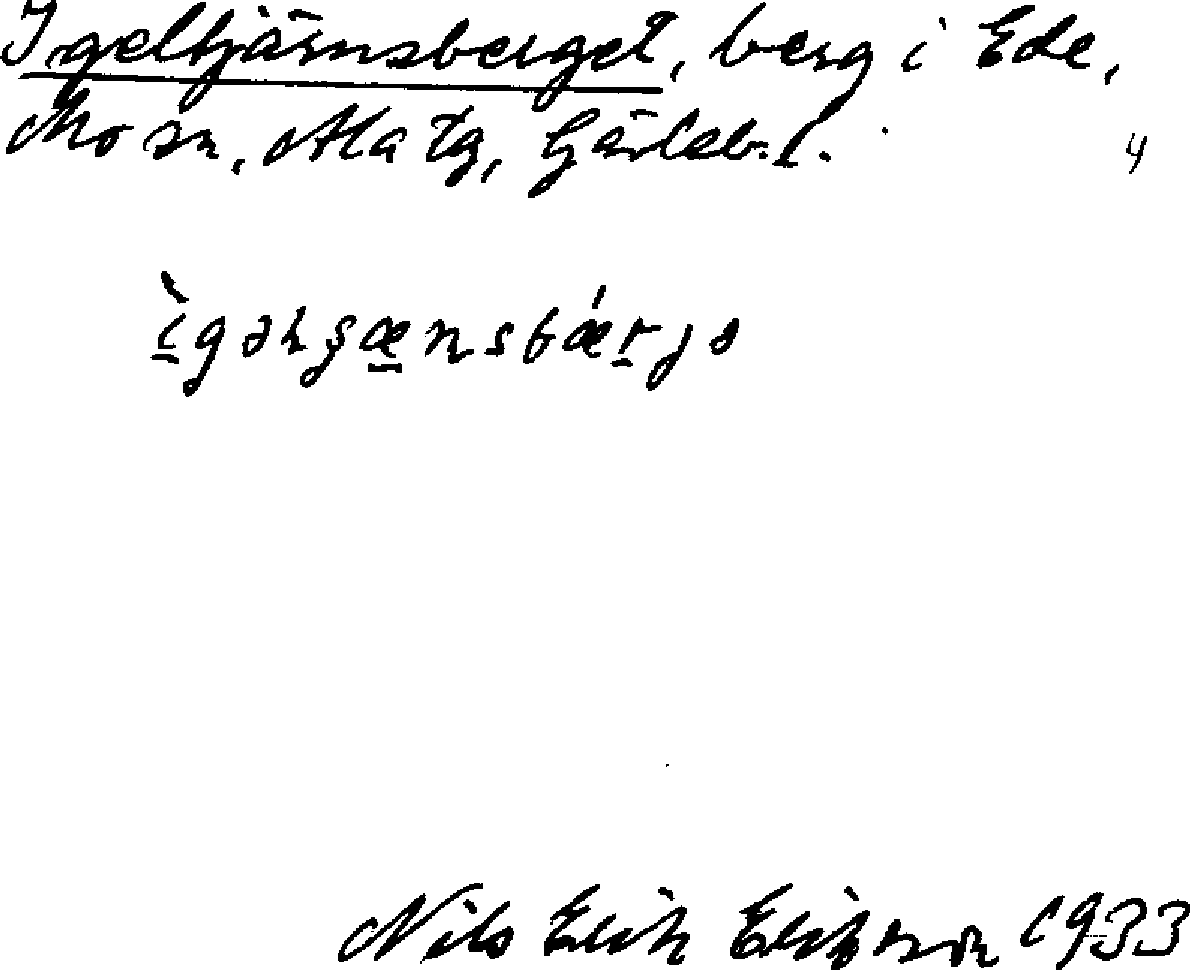 Igeltjärnsberget, berg i Ede,
Mo sn, Ala tg, Gävleb. l. 4
ìgəlʂænsbǽrjə
Nils Erik Eriksson 1933